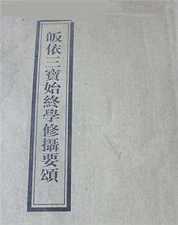 皈依三寶始終學修攝要頌